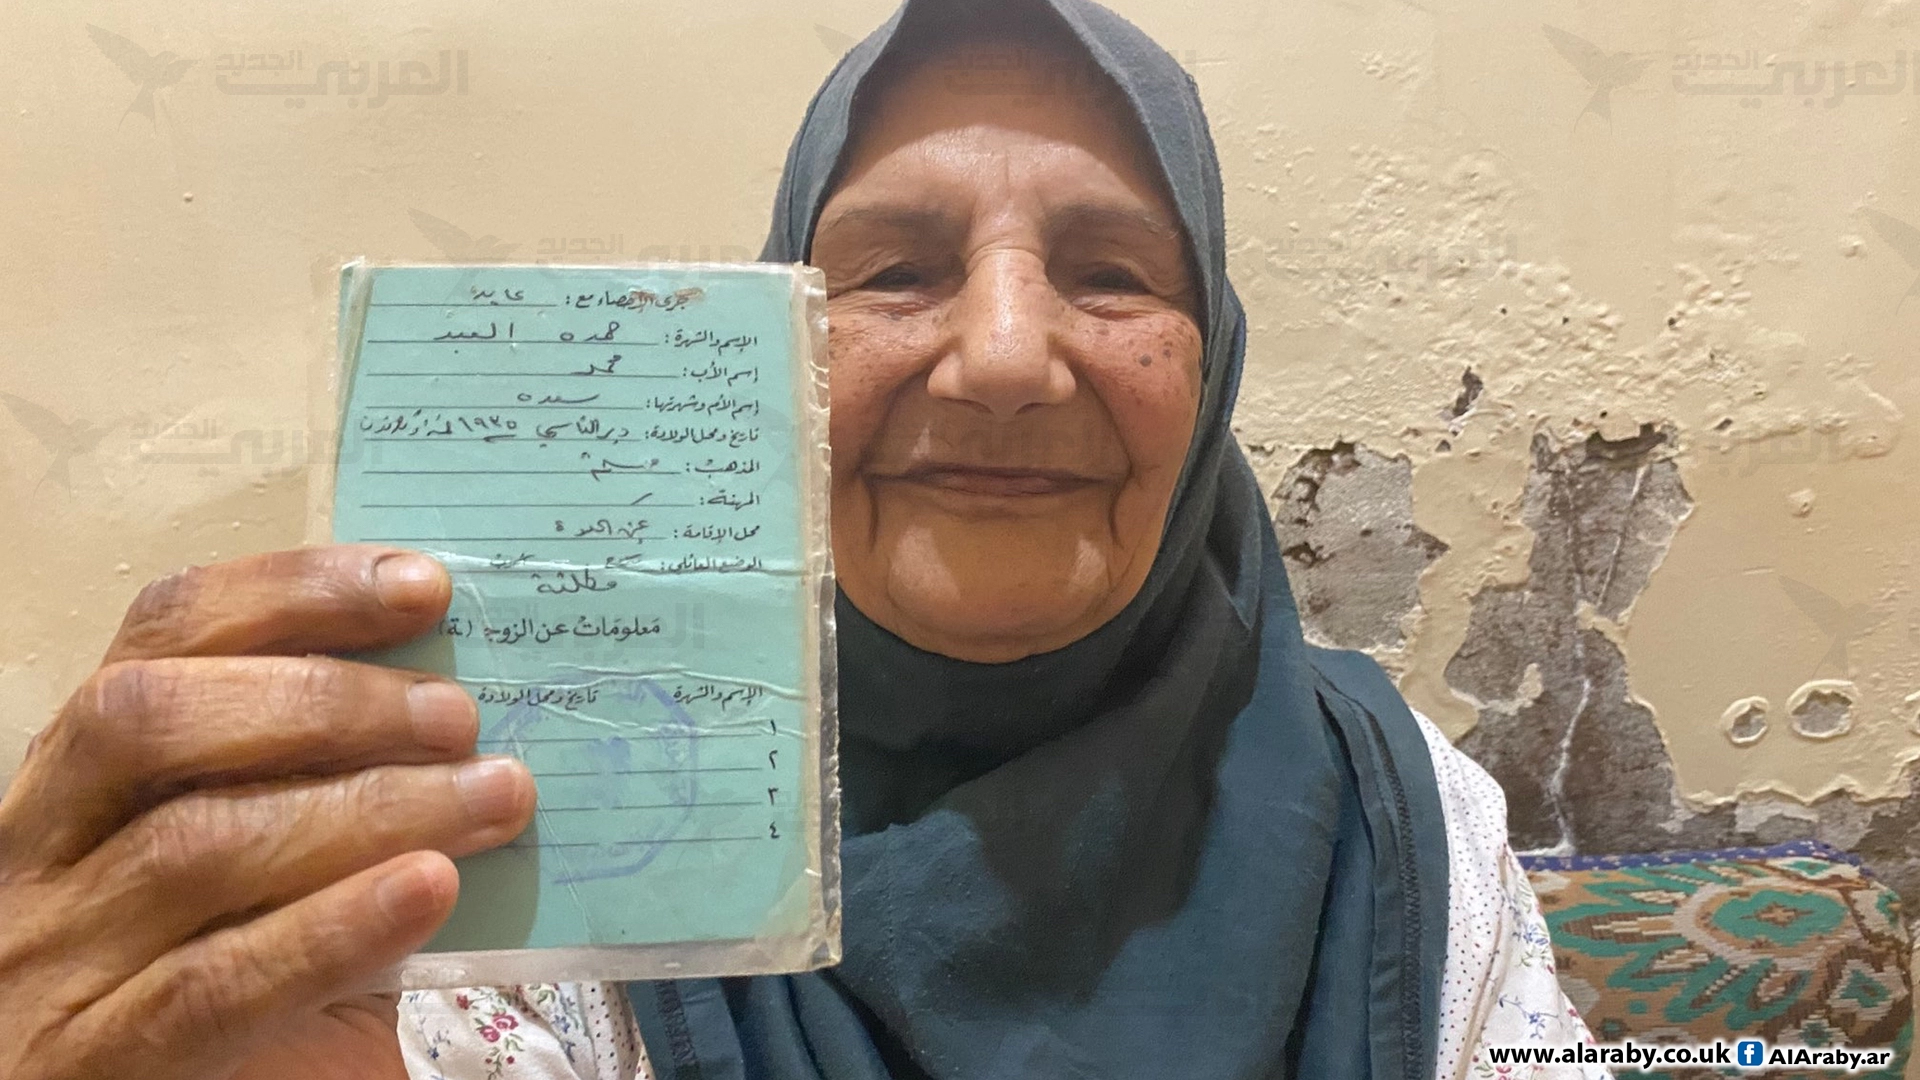 جرى الإحصاء مع: عايده
الإسم والشهرة: حمده العبد
إسم الأب: محمد
إسم الأم وشهرتها: سعده
تاريخ ومحل الولادة: دير القاسي ١٩٣٥
المذهب: مسلم
المهنة:
محل الإقامة: عين الحلوة
الوضع العائلي:
مطلقة
معلومات عن الزوج (ـة)
الإسم والشهرة تاريخ ومحل الولادة
١
٢
٣
٤
العربي الجديد
www.alaraby.co.uk AlAraby.ar